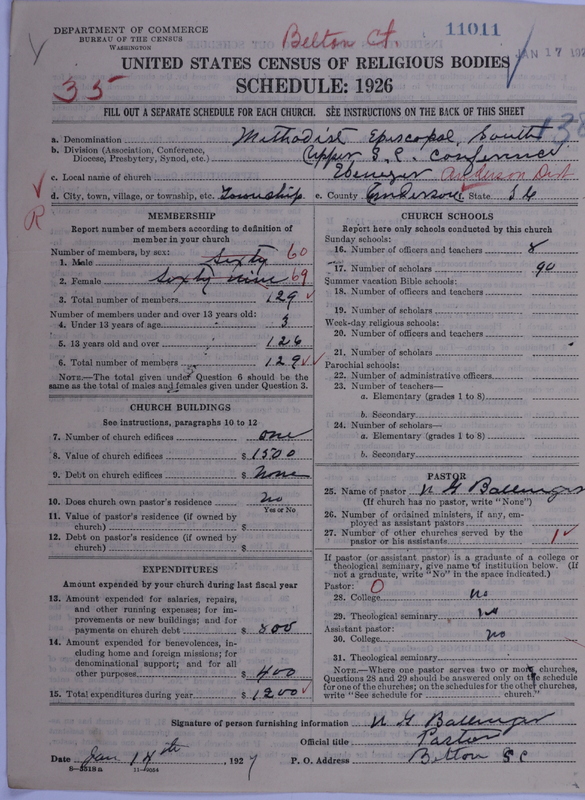 DEPARTMENT OF COMMERCE
BUREAU OF THE CENSUS
WASHINGTON
Belton Ct.
11011
JAN 17 192
35
UNITED STATES CENSUS OF RELIGIOUS BODIES
SCHEDULE: 1926
FILL OUT A SEPARATE SCHEDULE FOR EACH CHURCH. SEE INSTRUCTIONS ON THE BACK OF THIS SHEET
138
a. Denomination Methodist Episcopal, South
b. Division (Association, Conference, Diocese, Presbytery, Synod, etc.) Upper S. C. Conference
c. Local name of church Ebenezer Anderson Dist
d. City, town, village, or township, etc. Township e. County Anderson State S C
R
MEMBERSHIP
Report number of members according to definition of
member in your church
Number of members, by sex:
1. Male Sixty 60
2. Female Sixty nine 69
3. Total number of members 129
Number of members under and over 13 years old:
4. Under 13 years of age 3
5. 13 years old and over 126
6. Total number of members 129
NOTE.—The total given under Question 6 should be the
same as the total of males and females given under Question 3.
CHURCH BUILDINGS
See instructions, paragraphs 10 to 12
7. Number of church edifices one
8. Value of church edifices $ 1500
9. Debt on church edifices $ None
10. Does church own pastor's residence No
Yes or No
11. Value of pastor's residence (if owned by
church) $
12. Debt on pastor's residence (if owned by
church) $
EXPENDITURES
Amount expended by your church during last fiscal year
13. Amount expended for salaries, repairs,
and other running expenses; for im-
provements or new buildings; and for
payments on church debt $ 800
14. Amount expended for benevolences, in-
cluding home and foreign missions; for
denominational support; and for all
other purposes $ 400
15. Total expenditures during year $ 1200
CHURCH SCHOOLS
Report here only schools conducted by this church
Sunday schools:
16. Number of officers and teachers 8
17. Number of scholars 90
Summer vacation Bible schools:
18. Number of officers and teachers
19. Number of scholars
Week-day religious schools:
20. Number of officers and teachers
21. Number of scholars
Parochial schools:
22. Number of administrative officers
23. Number of teachers—
a. Elementary (grades 1 to 8)
b. Secondary
24. Number of scholars—
a. Elementary (grades 1 to 8)
b. Secondary
PASTOR
25. Name of pastor N G Ballenger
(If church has no pastor, write "None")
26. Number of ordained ministers, if any, em-
ployed as assistant pastors
27. Number of other churches served by the
pastor or his assistants 1
If pastor (or assistant pastor) is a graduate of a college or
theological seminary, give name of institution below. (If
not a graduate, write "No" in the space indicated.)
Pastor: 0
28. College No
29. Theological seminary No
Assistant pastor:
30. College No
31. Theological seminary
NOTE.—Where one pastor serves two or more churches,
Questions 28 and 29 should be answered only on the schedule
for one of the churches; on the schedules for the other churches,
write "See schedule for church."
Signature of person furnishing information N G Ballenger
Official title Pastor
Date Jan 14th, 1927 P. O. Address Belton S C
8—5518a 11—9054